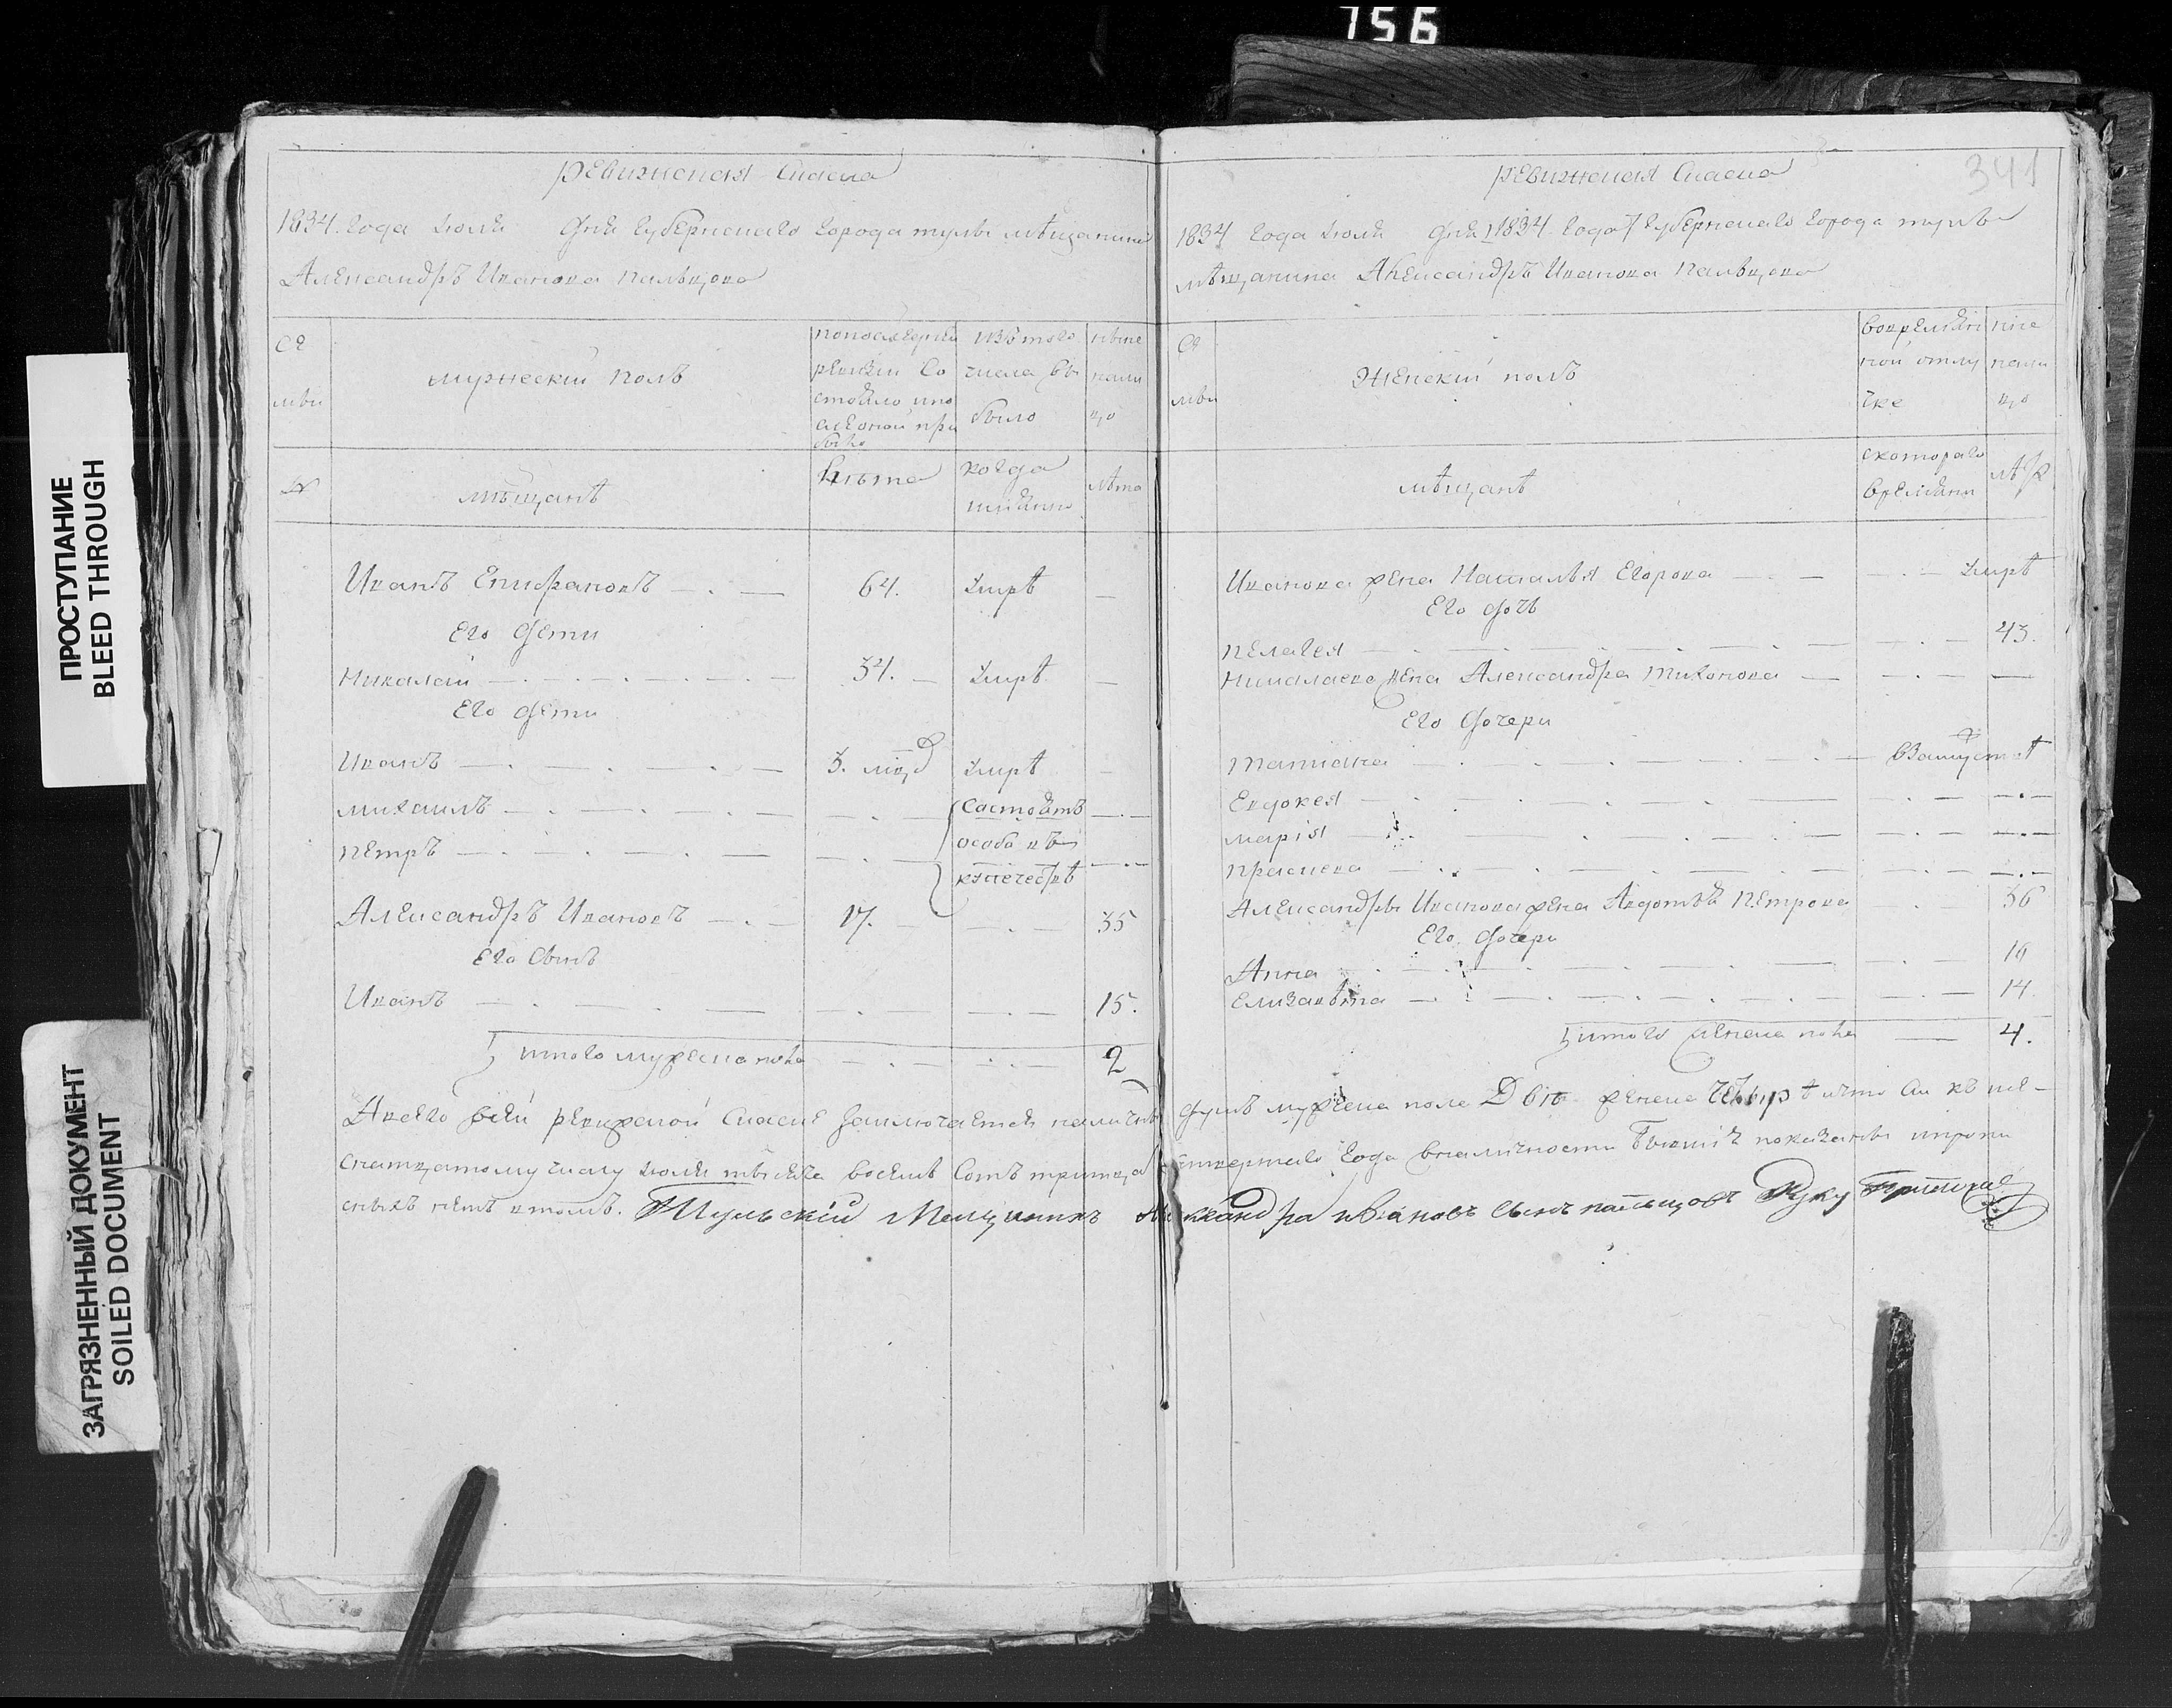 756
341
ПРОСТУПАНИЕ
BLEED THROUGH
ЗАГРЯЗНЕННЫЙ ДОКУМЕНТ
SOILED DOCUMENT
ревижская Скаска
1834. года Июля Дня губернскаго города тулы мѣщанина
Александръ Иванова пальцова
Се
мьи
мужескій полъ
попоследней
ревизіи со
стояло ипо
слѣ оной при
было
изъ того
числа вы
было
ныне
нали
цо
№
мѣщанѣ
Лѣта
когда
имянно
лѣта
Иванъ Епифановъ — . — 64. Умрѣ —
Его Дети
Николай — 34. — Умрѣ —
Его Дети
Иванъ — 3. мѣд Умрѣ —
михаилъ — Састоятъ
Петръ — особа въ
купечествѣ
Александръ Ивановъ — 17. — 35
Его Сынъ
Иванъ — 15.
итого мужеска пола — 2
ревижская Скаска
1834 года Июля Дня 1834 года губернскаго города тулы
мѣщанина Александръ Иванова пальцова
Се
мьи
Женскій полъ
вовремян
ной отлу
чке
ные
нали
цо
мѣщанѣ
скотораго
времяни
лѣта
Иванова жена Наталья Егорова — Умрѣ
Его Дочь
пелагея — 43.
Николаева жена Александра тихонова —
Его Дочери
татиана — взамужстѣ
Евдокея —
марія —
прасковa —
Александры Иванова жена Авдотья Петрова — 36
Его Дочери
Анна — 16
Елизавѣта — 14
итого женска пола — 4.
Авсего всей ревижской Скаске заключается наличныхъ душъ мужеска пола Двѣ женска Четырѣ что
счатцатому числу июля тысяча восемь Сотъ тритцать четвертаго года вналичности показаны ипропи
сныхъ нетъ втомъ. Тульскій Мещининъ Александра ивановъ сынъ пальцовъ Руку приложилъ